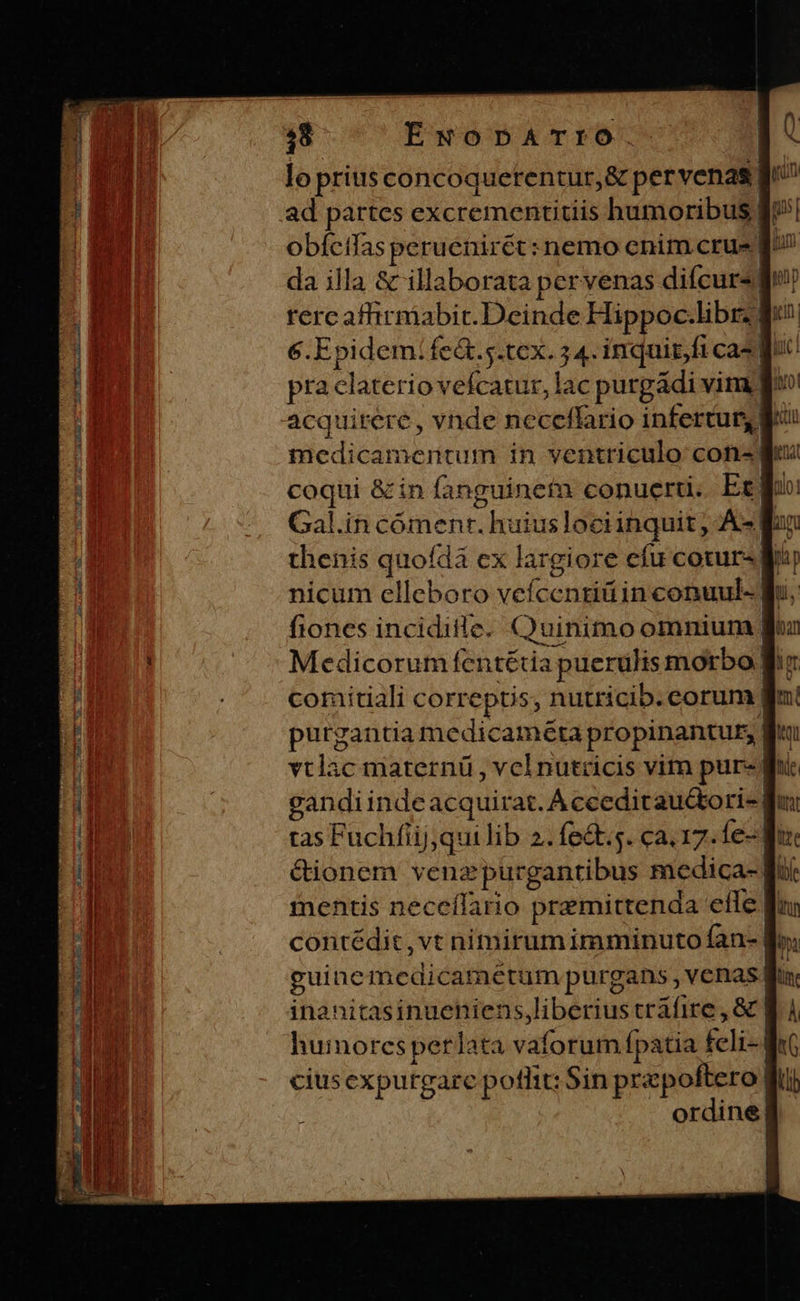 38 ENODATIO.
lo prius concoquerentur, & per venas
ad partes excrementitiis humoribus
obſeſſas peruenirét: nemo enim cru-
da illa & illaborata per venas diſcur-
rere affirmabit. Deinde Hippoc. libr.
6. Epidem. ſect. 5. tex. 34. inquit, ſi ca-
pra elaterio veſcatur, lac purgādi vim
acquirere, vnde neceſſario infertur,
medicamentum in ventriculo con-
coqui & in ſanguinem conuerti. Et
Gal. in cōment. huius loci inquit, A-
thenis quoſdā ex largiore eſu cotur-
nicum elleboro veſcentiū in conuul-
ſiones incidiſſe. Quinimo omnium
Medicorum ſentētia puerulis morbo
comitiali correptis, nutricib. eorum
purgantia medicamēta propinantur,
vt lac maternū, vel nutricis vim pur-
gandi inde acquirat. Accedit auctori-
tas Fuchſij, qui lib 2. ſect. 5. ca, 17. ſe-
ctionem venæ purgantibus medica-
mentis neceſſario præmittenda eſſe
contēdit, vt nimirum imminuto ſan-
guine medicamētum purgans, venas
inanitas inueniens, liberius trāſire, &
humores per lata vaſorum ſpatia feli-
cius expurgare poſſit: Sin præpoſtero
ordine